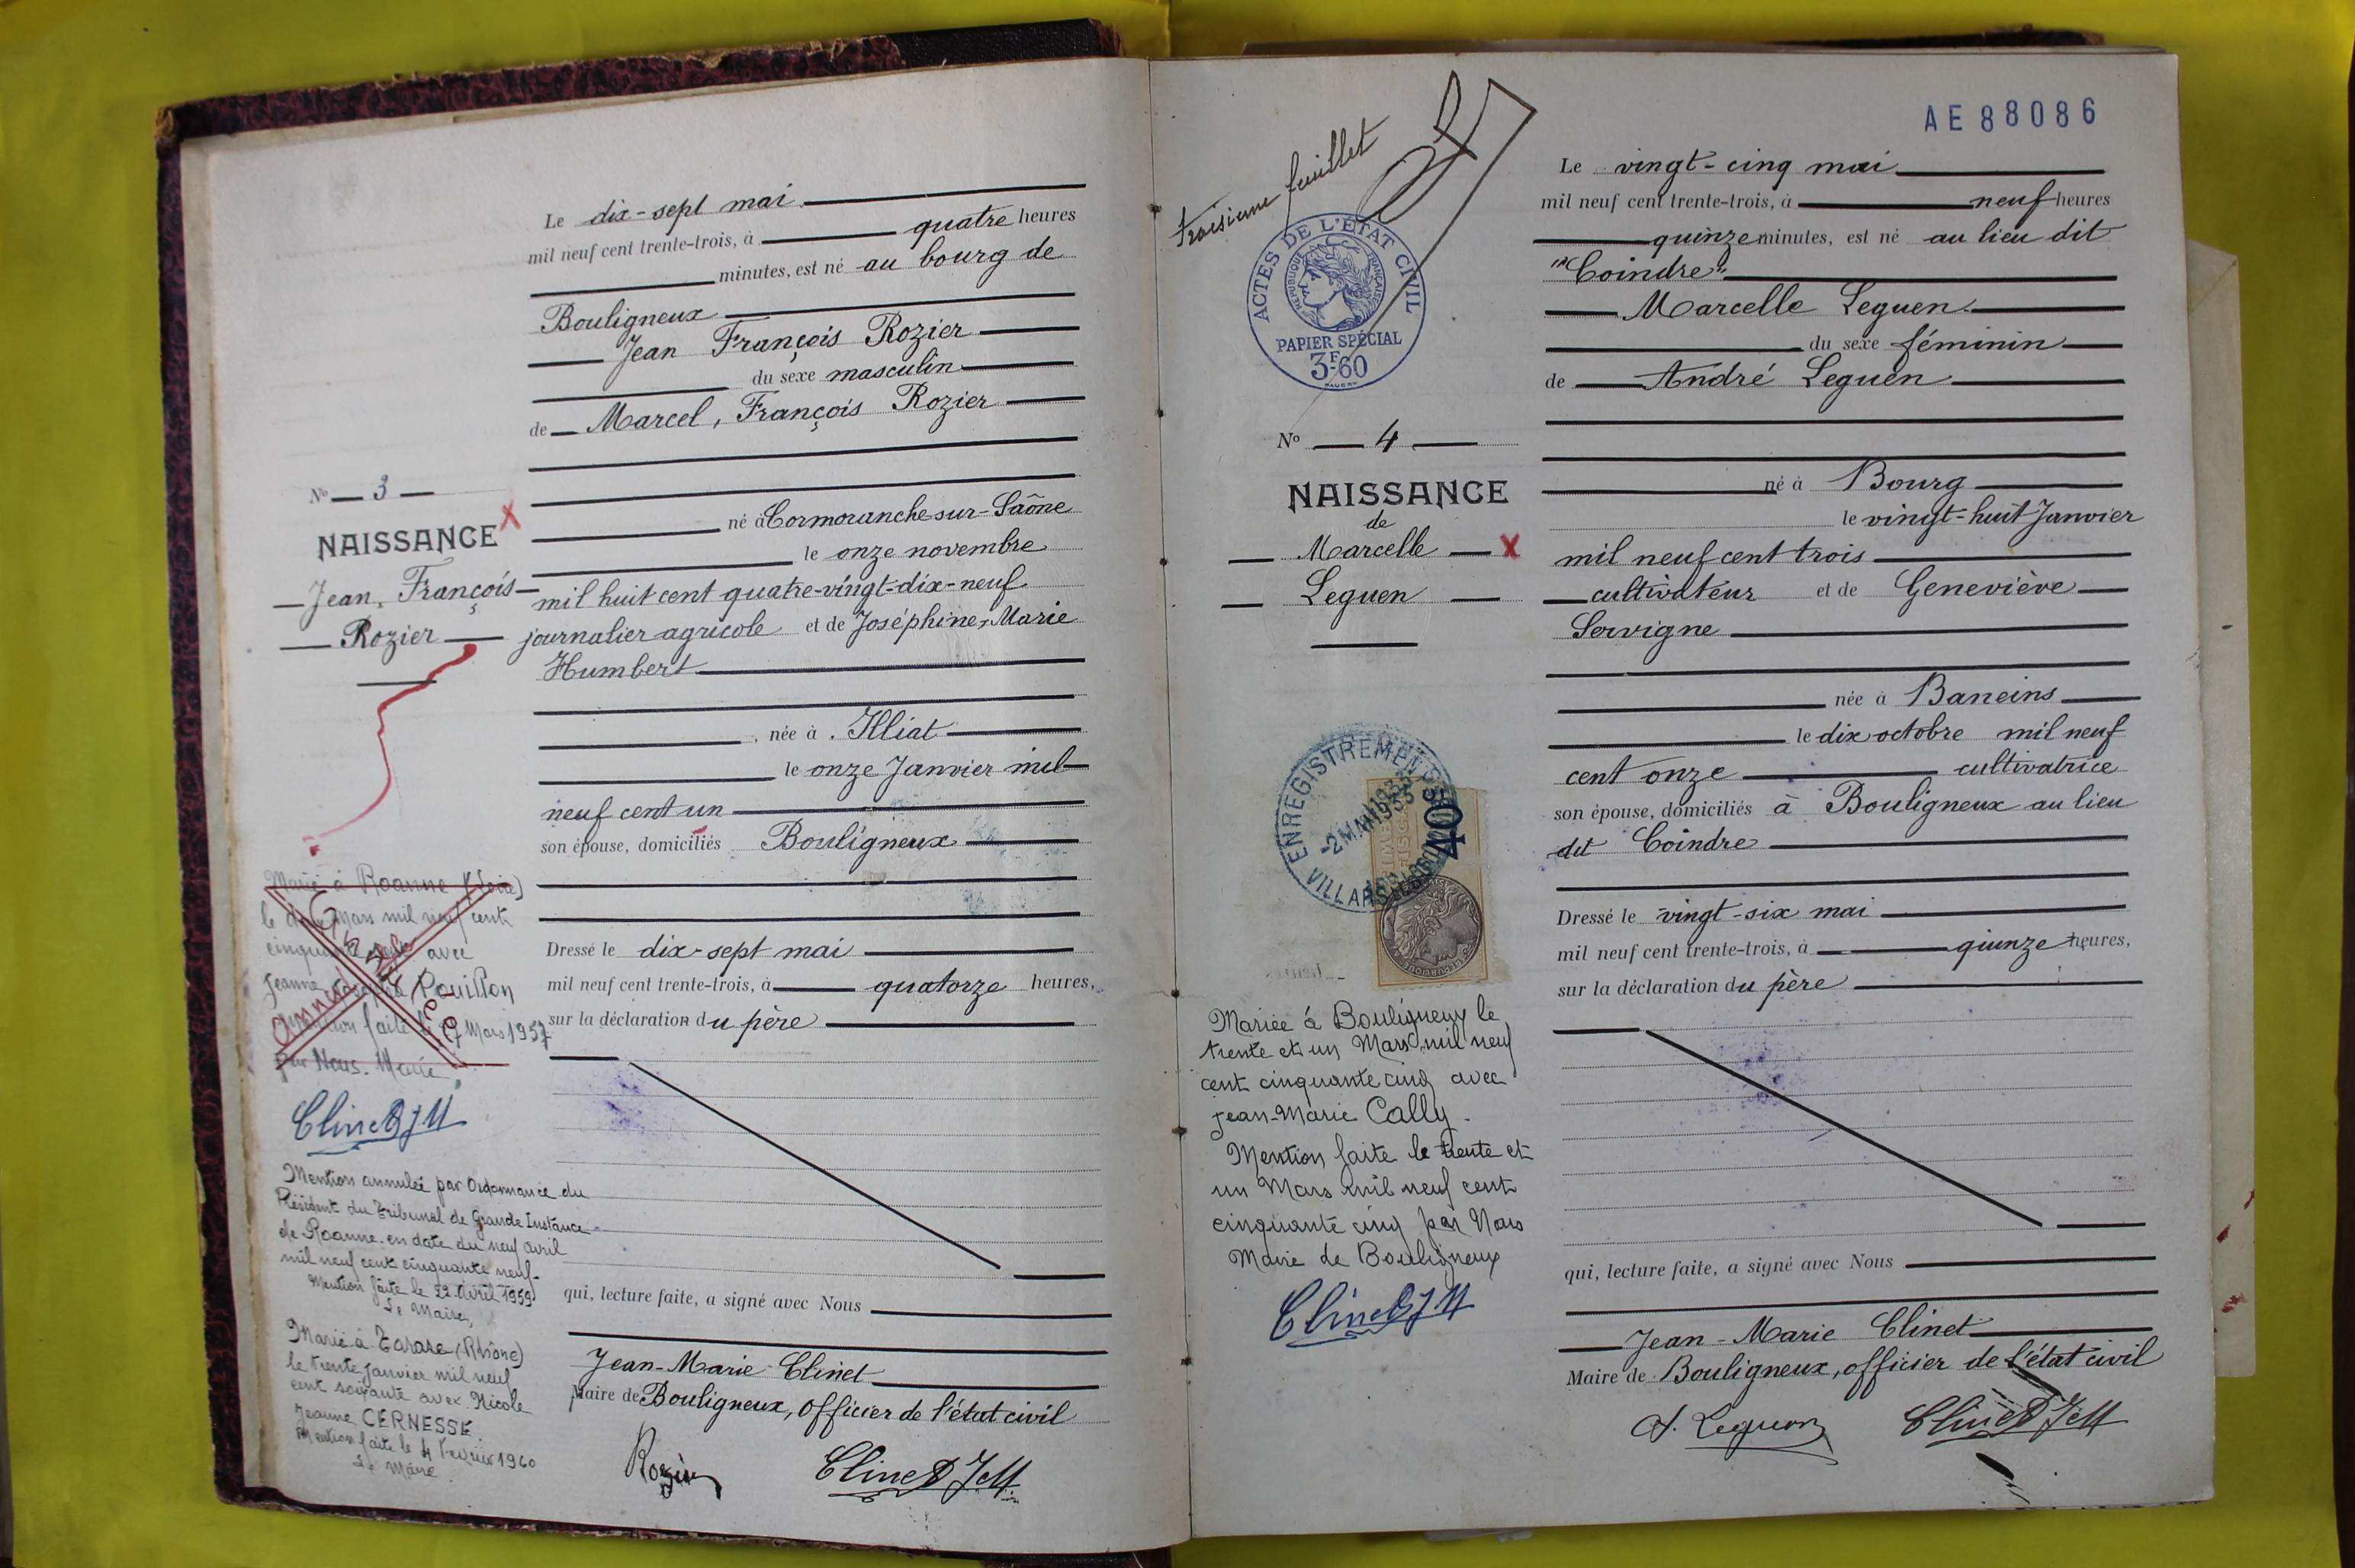 Le dix-sept mai
mil neuf cent trente-trois, à quatre heures
minutes, est né au bourg de
Bouligneux
Jean François Rozier
du sexe masculin
de Marcel, François Rozier
né à Cormoranche-sur-Saône
le onze novembre
mil huit cent quatre-vingt-dix-neuf
journalier agricole et de Joséphine, Marie
Humbert
, née à Illiat
le onze Janvier mil
neuf cent un
son épouse, domiciliés Bouligneux
Dressé le dix-sept mai
mil neuf cent trente-trois, à quatorze heures,
sur la déclaration du père
qui, lecture faite, a signé avec Nous
Jean-Marie Clinet
Maire de Bouligneux, officier de l'état civil
Rozier Clinet J M
No 3
NAISSANCE X
Jean, François
Rozier
Marié à Roanne (Loire)
le deux Mars mil neuf cent
cinquante sept avec
Jeanne Pouillon
Mention faite le 7 Mars 1957
par Nous. Maire
annulé
Clinet J M
Mention annulée par Ordonnance du
Président du Tribunal de Grande Instance
de Roanne en date du neuf avril
mil neuf cent cinquante neuf.
Mention faite le 22 Avril 1959
Le Maire,
Marié à Tarare (Rhône)
le trente Janvier mil neuf
cent soixante avec Nicole
Jeanne CERNESSE.
Mention faite le 4 Février 1960
Le Maire.
troisième feuillet
ACTES DE L'ÉTAT CIVIL
RÉPUBLIQUE FRANÇAISE
PAPIER SPÉCIAL
3F.60
No 4
NAISSANCE
de
Marcelle X
Leguen
ENREGISTREMENT
-2 MAI 1933
VILLARS
40c
Mariée à Bouligneux le
trente et un Mars mil neuf
cent cinquante cinq avec
Jean-Marie Cally.
Mention faite le trente et
un Mars mil neuf cent
cinquante cinq par Nous
Maire de Bouligneux
Clinet J M
AE 88086
Le vingt-cinq mai
mil neuf cent trente-trois, à neuf heures
quinze minutes, est né au lieu dit
"Coindre"
Marcelle Leguen
du sexe féminin
de André Leguen
né à Bourg
le vingt-huit Janvier
mil neuf cent trois
cultivateur et de Geneviève
Servigne
née à Baneins
le dix octobre mil neuf
cent onze cultivatrice
son épouse, domiciliés à Bouligneux au lieu
dit Coindre
Dressé le vingt-six mai
mil neuf cent trente-trois, à quinze heures,
sur la déclaration du père
qui, lecture faite, a signé avec Nous
Jean-Marie Clinet
Maire de Bouligneux, officier de l'état civil
A. Leguen Clinet J M